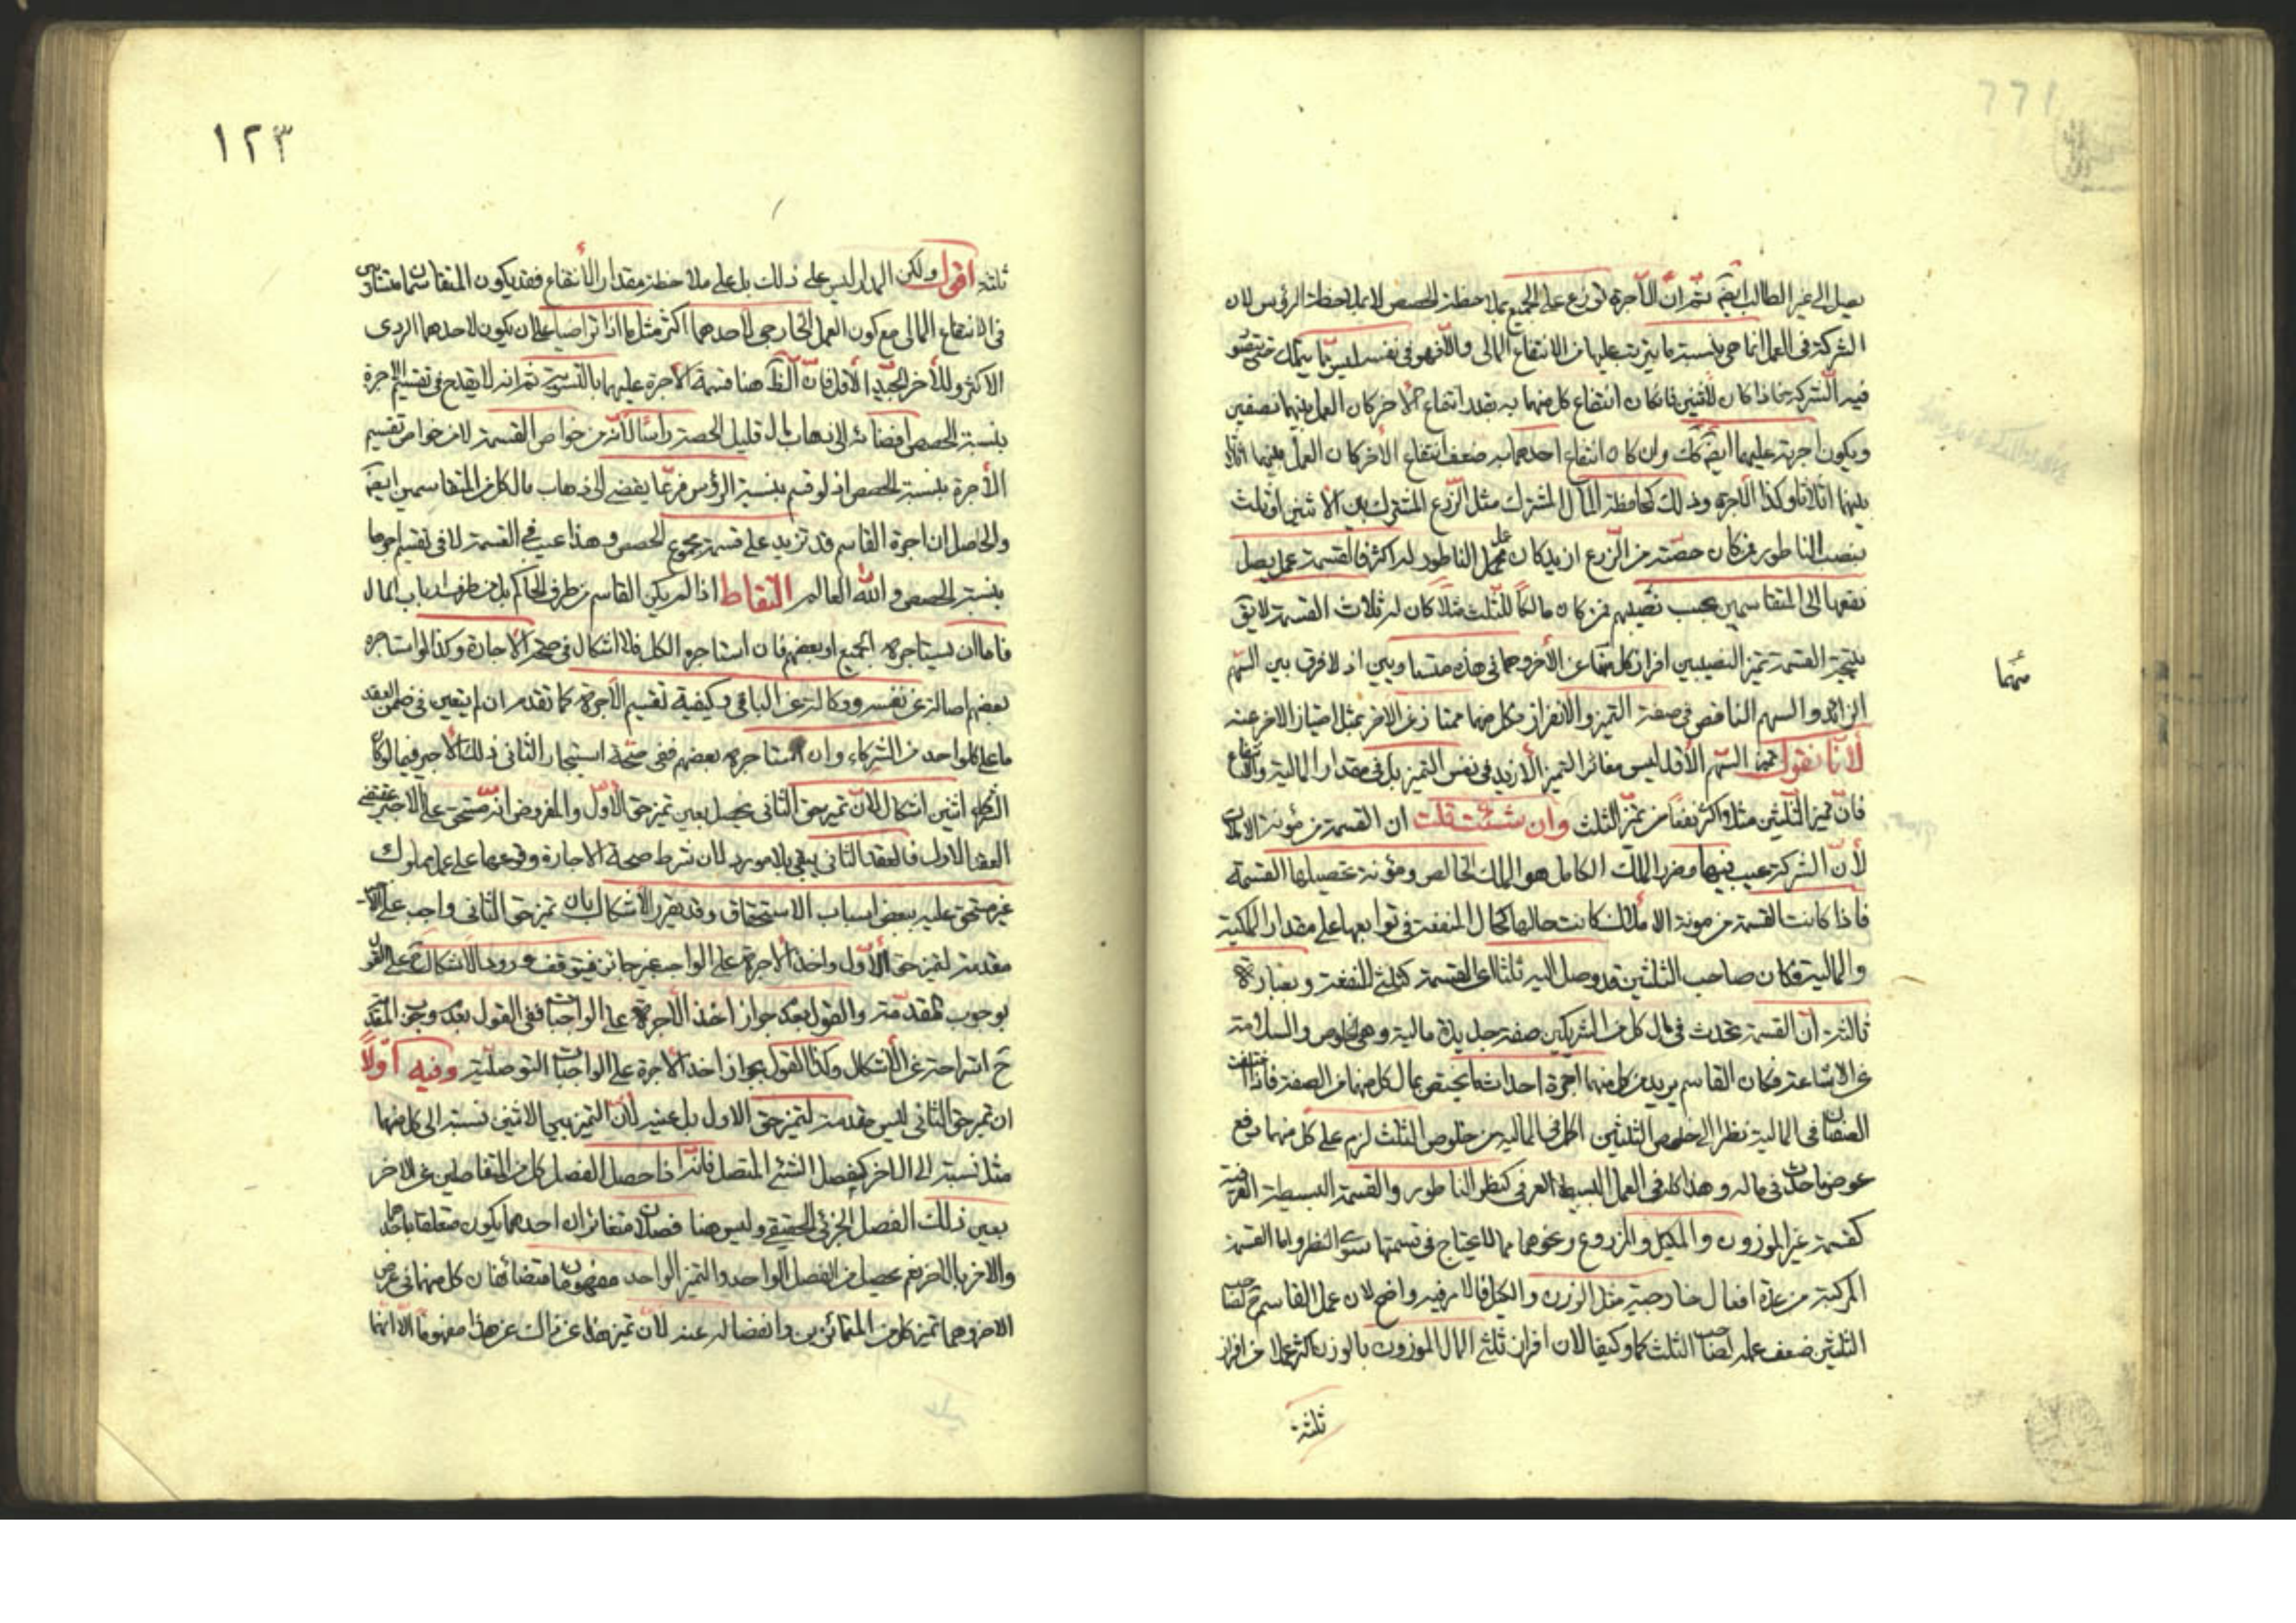 يصل الى غير الطالب ايضم ثم ان الاجرة توزع على الجميع بملاحظة الحصص لا بملاحظة الرؤس لان
الشركة فى العمل انما هى بنسبة ما يترتب عليها من الانتفاع المالى والا فهو فى نفسه ليس مما يتملك حتى يتصور
فيه الشركة فاذا كان لاثنين فان كان انتفاع كل منهما به بقدر انتفاع الآخر كان العمل بينهما نصفين
ويكون اجرته عليهما ايضم كك وان كان انتفاع احدهما به ضعف انتفاع الآخر كان العمل بينهما اثلاثا
بينهما اثلاثا وكذا الاجرة وذلك كمحافظة المال المشترك مثل الزرع المشترك بين الاثنين او ثلث
بنصب الناطور فمن كان حصته من الزرع ازيد كان عمل الناطور له اكثر فالقسمة عمل يصل
نفعها الى المتقاسمين بحسب نصيبهم فمن كان مالكا للثلث مثلا كان له ثلاث القسمة لا يق
نتيجة القسمة تميز النصيبين افراز كل منهما عن الآخر وهما فى هذه متساويين اذ لا فرق بين السهم
منهما
الزائد والسهم الناقص فى صفة التميز والانفراز فكل منهما ممتاز عن الآخر بمثل امتياز الآخر عنه
لانا نقول تميز السهم الأقل ليس مغائرا لتميز الأزيد فى نفس التميز بل فى مقدار المالية والانتفاع
فان تميز الثلثين مثلا اكثر نفعا من تميز الثلث وان شئت قلت ان القسمة من مؤنة الاملاك
لأن الشركة عيب فيها وضرر الملك الكامل هو الملك الخالص ومؤنة تحصيلها القسمة
فاذا كانت القسمة من مونة الاملاك كانت حالها كحال المنفعة فى توابعها على مقدار الملكية
والمالية فكان صاحب الثلثين قد وصل اليه ثلثا القسمة كثلثى المنفعة وبعبارة
ثالثة ان القسمة تحدث فى مال كل من الشريكين صفة جديدة مالية وهى الخلوص والسلامة
عن الاشاعة فكان القاسم يريد من كل منهما اجرة احداث ما يختص بمال كل منهما من الصفة فاذا اختلفت
الصفتان فى المالية نظرا الى خلوص الثلثين اكل فى المالية من خلوص الثلث لزم على كل منهما دفع
عوض ما حدث فى ماله وهذا كله فى العمل البسيط العرفى كنظر الناطور والقسمة البسيطة العرفية
كقسمة غير الموزون والمكيل والمزروع ونحوهما مما لا يحتاج فى قسمتها سوى النظر واما القسمة
المركبة من عدة افعال خارجية مثل الوزن والكيل فالامر فيه واضح لان عمل القاسم ح لصاحب
الثلثين ضعف عمله لصاحب الثلث كما وكيفا لان افراز ثلثى المال الموزون بالوزن اكثر عملا من افراز
ثلثه
١٢٣
ثلثه اقول ولكن المدار ليس على ذلك بل على ملاحظة مقدار الانتفاع فقد يكون المتقاسمان متساويين
فى الانتفاع المالى مع كون العمل الخارجى لاحدهما اكثر مثل ما اذا تراضيا على ان يكون لاحدهما الردى
الاكثر وللآخر الجيد الأقل فان الظ هنا قسمة الأجرة عليهما بالتسوية ثم انه لا يقدح فى تقسيم الاجرة
بنسبة الحصص افضائه الى ذهاب مال قليل الحصة راسا لأنه من خواص القسمة لا من خواص تقسيم
الأجرة بنسبة الحصص اذ لو قسم بنسبة الرؤس فربما يفضى الى ذهاب مال كل من المتقاسمين ايضم
والحاصل ان اجرة القاسم قد تزيد على قسمة مجموع الحصص وهذا عيب فى القسمة لا فى تقسيم اجرها
بنسبة الحصص والله العالم التقاط اذا لم يكن القاسم من طرف الحاكم بل من طرف ارباب المال
فاما ان يستاجره الجميع او بعضهم فان استاجره الكل فلا اشكال فى صحة الاجارة وكذا لو استاجره
بعضهم اصالة عن نفسه ووكالة عن الباقى وكيفية تقسيم الأجرة كما تقدم ان لم يتعين فى ضمن العقد
ما على كل واحد من الشركاء وان استاجره بعضهم ففى صحة استيجار الثانى ذلك الأجير فيما لو كان
الشركاء اثنين اشكال لان تميز حق الثانى يحصل بعين تميز حق الأول والمفروض انه مستحق على الاجير بمقتضى
العقد الاول فالعقد الثانى يبقى بلا مورد لان شرط صحة الاجارة وقوعها على عمل مملوك
غير مستحق عليه ببعض اسباب الاستحقاق وقد يقرر الاشكال بان تميز حق الثانى واجب على
مقدمة لتميز حق الأول واخذ الأجرة على الواجب غير جائز فيتوقف ورود الاشكال ح على القول
بوجوب المقدمة والقول بعدم جواز اخذ الأجرة على الواجبات ففى القول بعدم وجوب المقدمة
ح استراحة عن الأشكال وكذا القول بجواز اخذ الاجرة على الواجبات التوصلية وفيه اولا
ان تميز حق الثانى ليس مقدمة لتميز حق الاول بل عينه لان التميز بين الاثنين نسبته الى كل منهما
مثل نسبته الى الآخر كفصل الشئ المتصل فانه اذا حصل الفصل كل من المتفاصلين عن الآخر
بعين ذلك الفصل الجزئى الحقيقى وليس هنا فصلان متغائران احدهما يكون متعلقا باحدهما
والآخر بالآخر نعم يحصل من الفصل الواحد والتميز الواحد مفهومان متضائفان كل منهما فى عرض
الآخر وهما تميز كل من المتمائزين وانفصاله عنه لان تميز هذا عن ذاك عن هذا مفهوما الا انهما